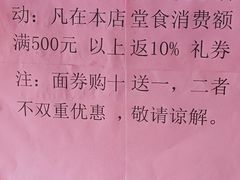 动：凡在本店堂食消费额
满500元 以上返10% 礼券
注：面券购十送一，二者
不双重优惠 ，敬请谅解。